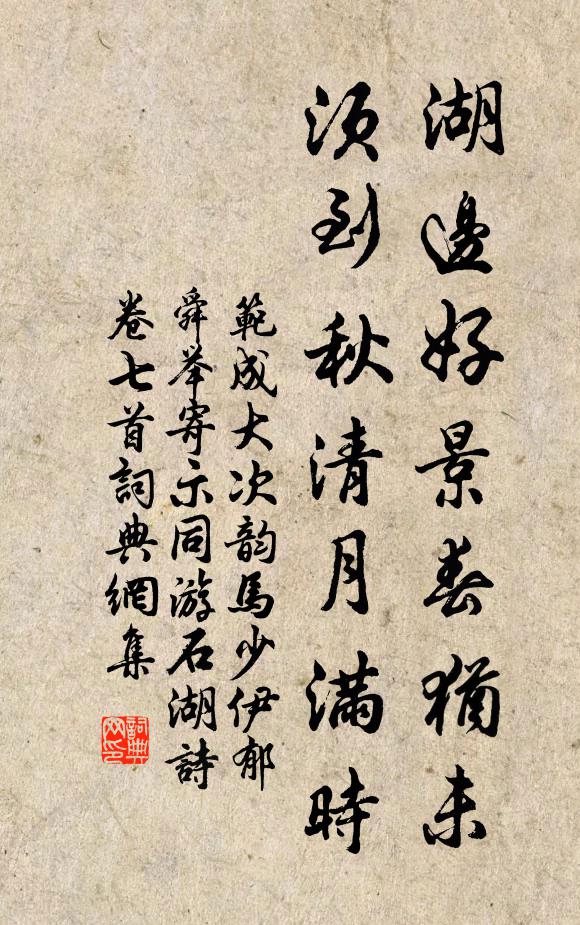 湖邊好景春猶未
須到秋清月滿時
範成大次韵馬少伊郁
舜举寄示同游石湖詩
卷七首詞典網集
詞典網印